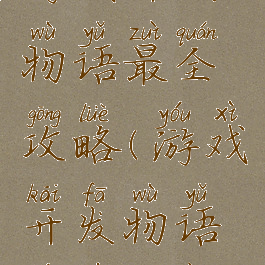 wù yǔ zuì quán
物语最全
gōng lüè yóu xì
攻略(游戏
kāi fā wù yǔ
开发物语